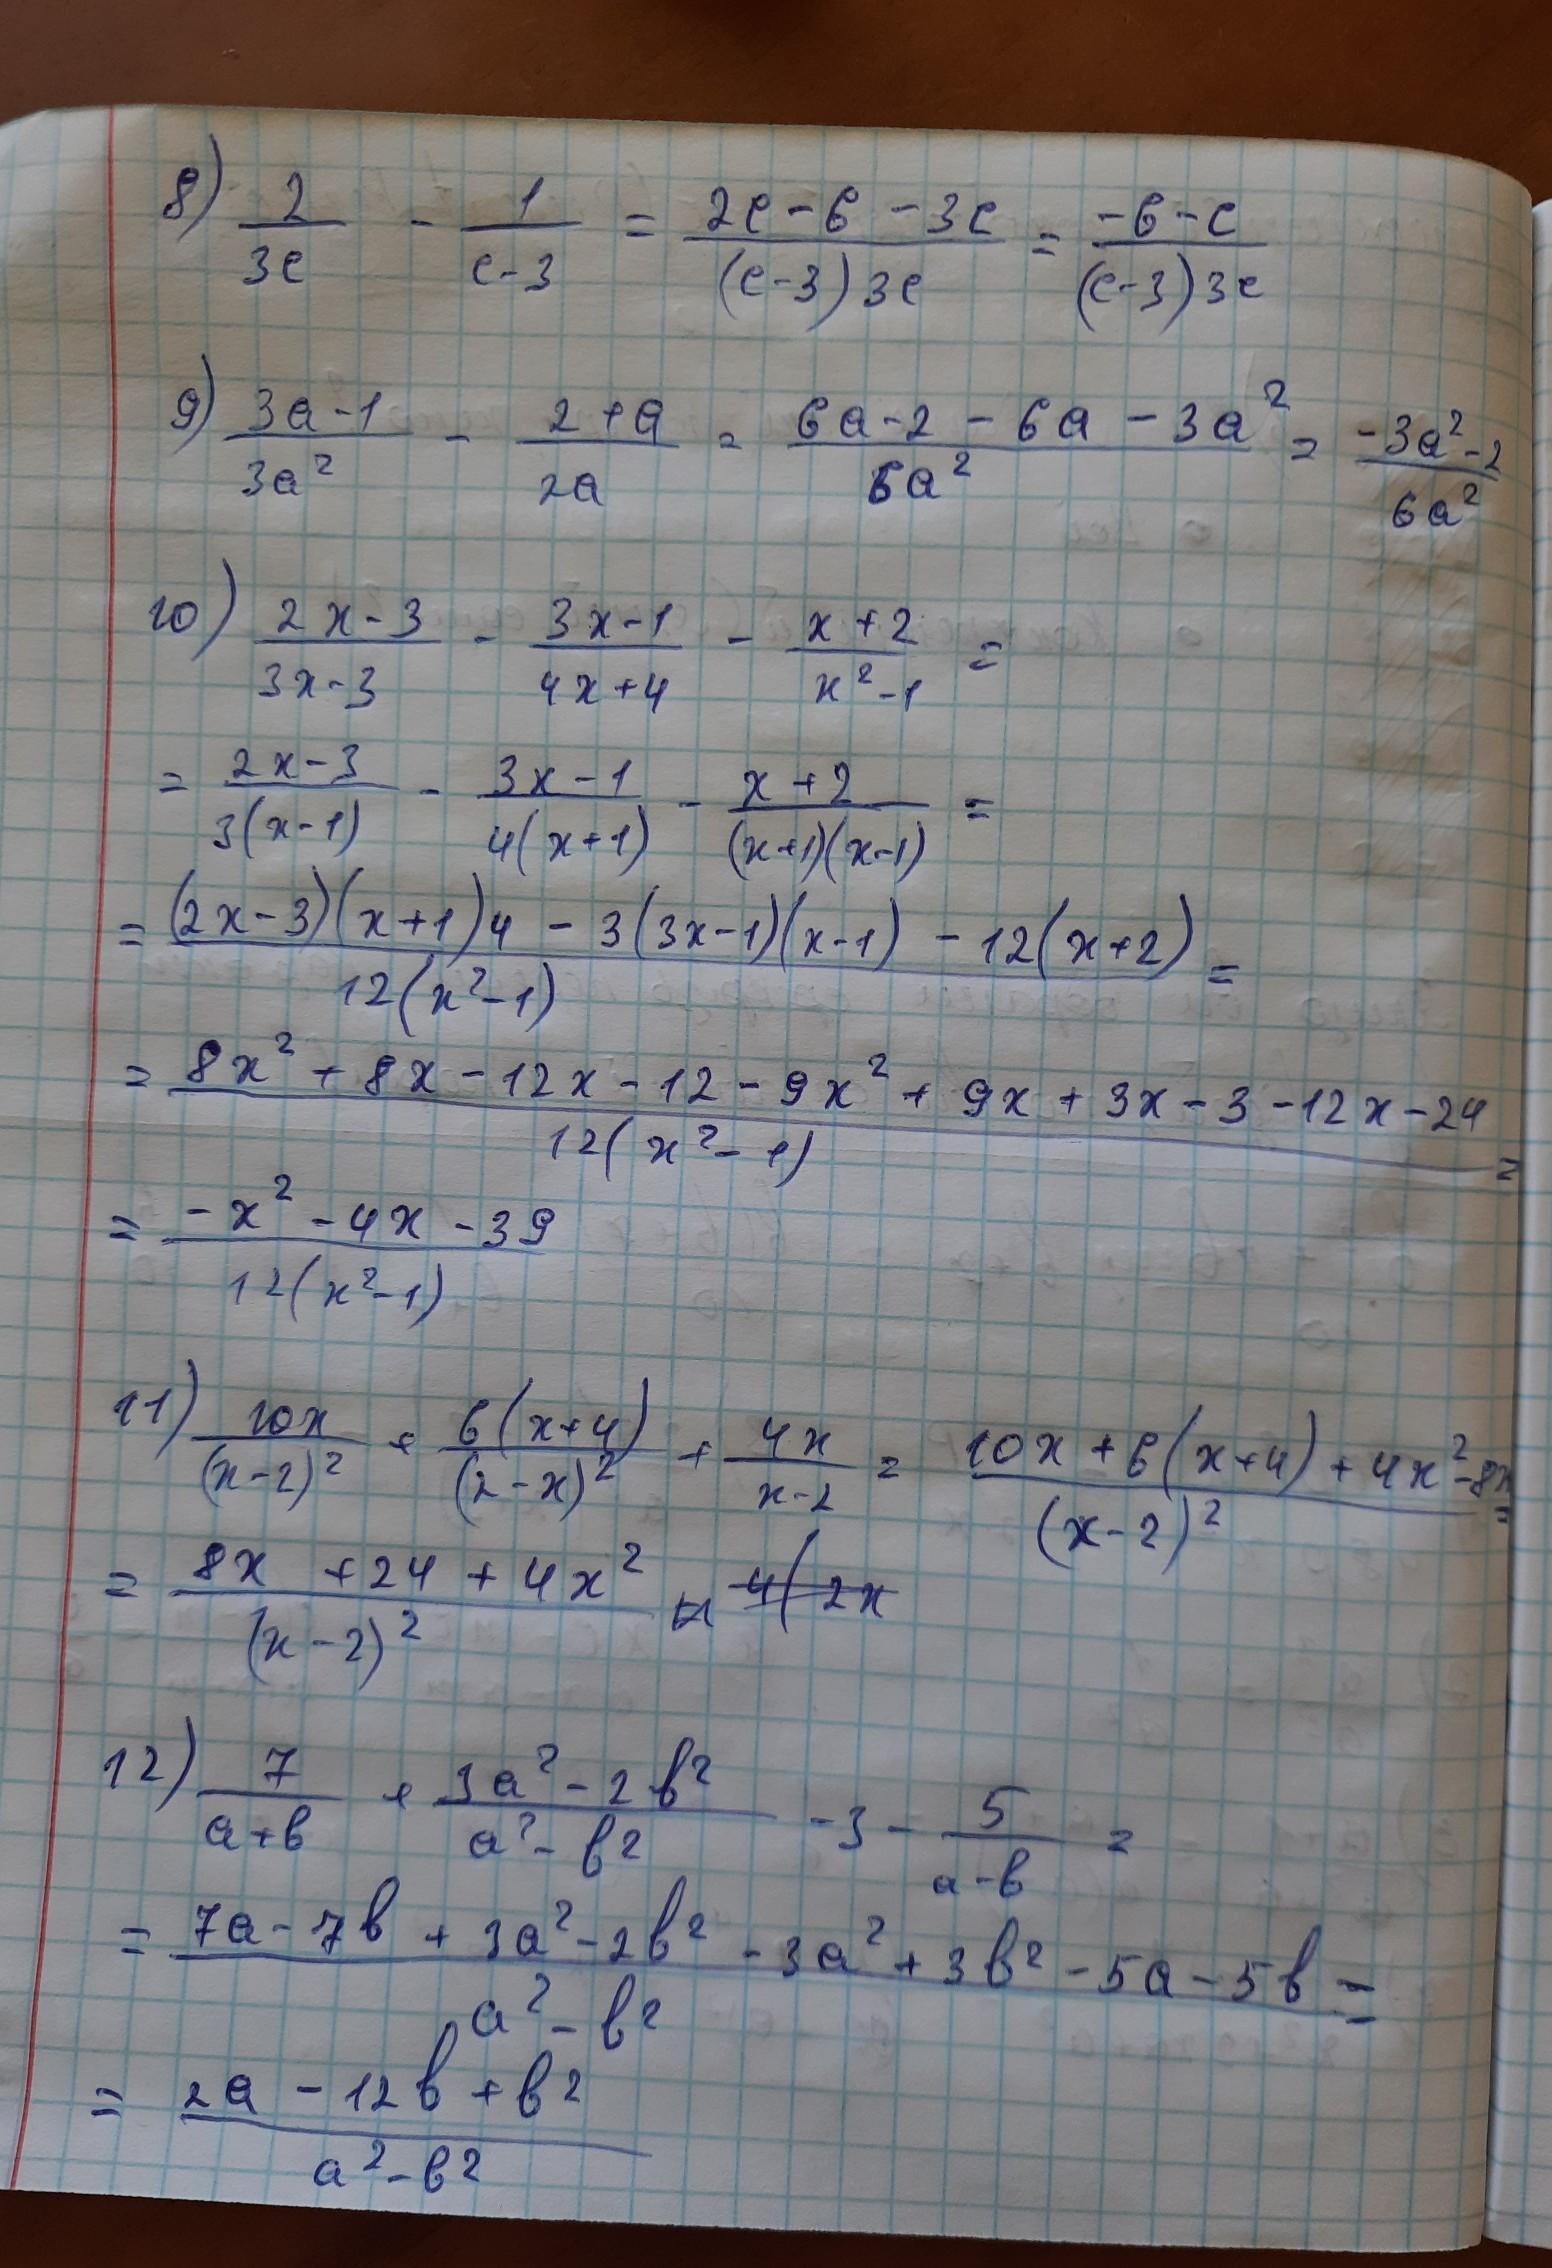 8) 2/(3c) - 1/(c-3) = (2c-6-3c)/((c-3)3c) = (-6-c)/((c-3)3c)
9) (3a-1)/(3a²) - (2+a)/(2a) = (6a-2-6a-3a²)/(6a²) = (-3a²-2)/(6a²)
10) (2x-3)/(3x-3) - (3x-1)/(4x+4) - (x+2)/(x²-1) =
= (2x-3)/(3(x-1)) - (3x-1)/(4(x+1)) - (x+2)/((x+1)(x-1)) =
= ((2x-3)(x+1)4 - 3(3x-1)(x-1) - 12(x+2))/(12(x²-1)) =
= (8x²+8x-12x-12-9x²+9x+3x-3-12x-24)/(12(x²-1)) =
= (-x²-4x-39)/(12(x²-1))
11) 10x/(x-2)² + 6(x+4)/(2-x)² + 4x/(x-2) = (10x+6(x+4)+4x²-8x)/(x-2)² =
= (8x+24+4x²)/(x-2)² 4(2x
12) 7/(a+b) + (3a²-2b²)/(a²-b²) - 3 - 5/(a-b) =
= (7a-7b+3a²-2b²-3a²+3b²-5a-5b)/(a²-b²) =
= (2a-12b+b²)/(a²-b²)